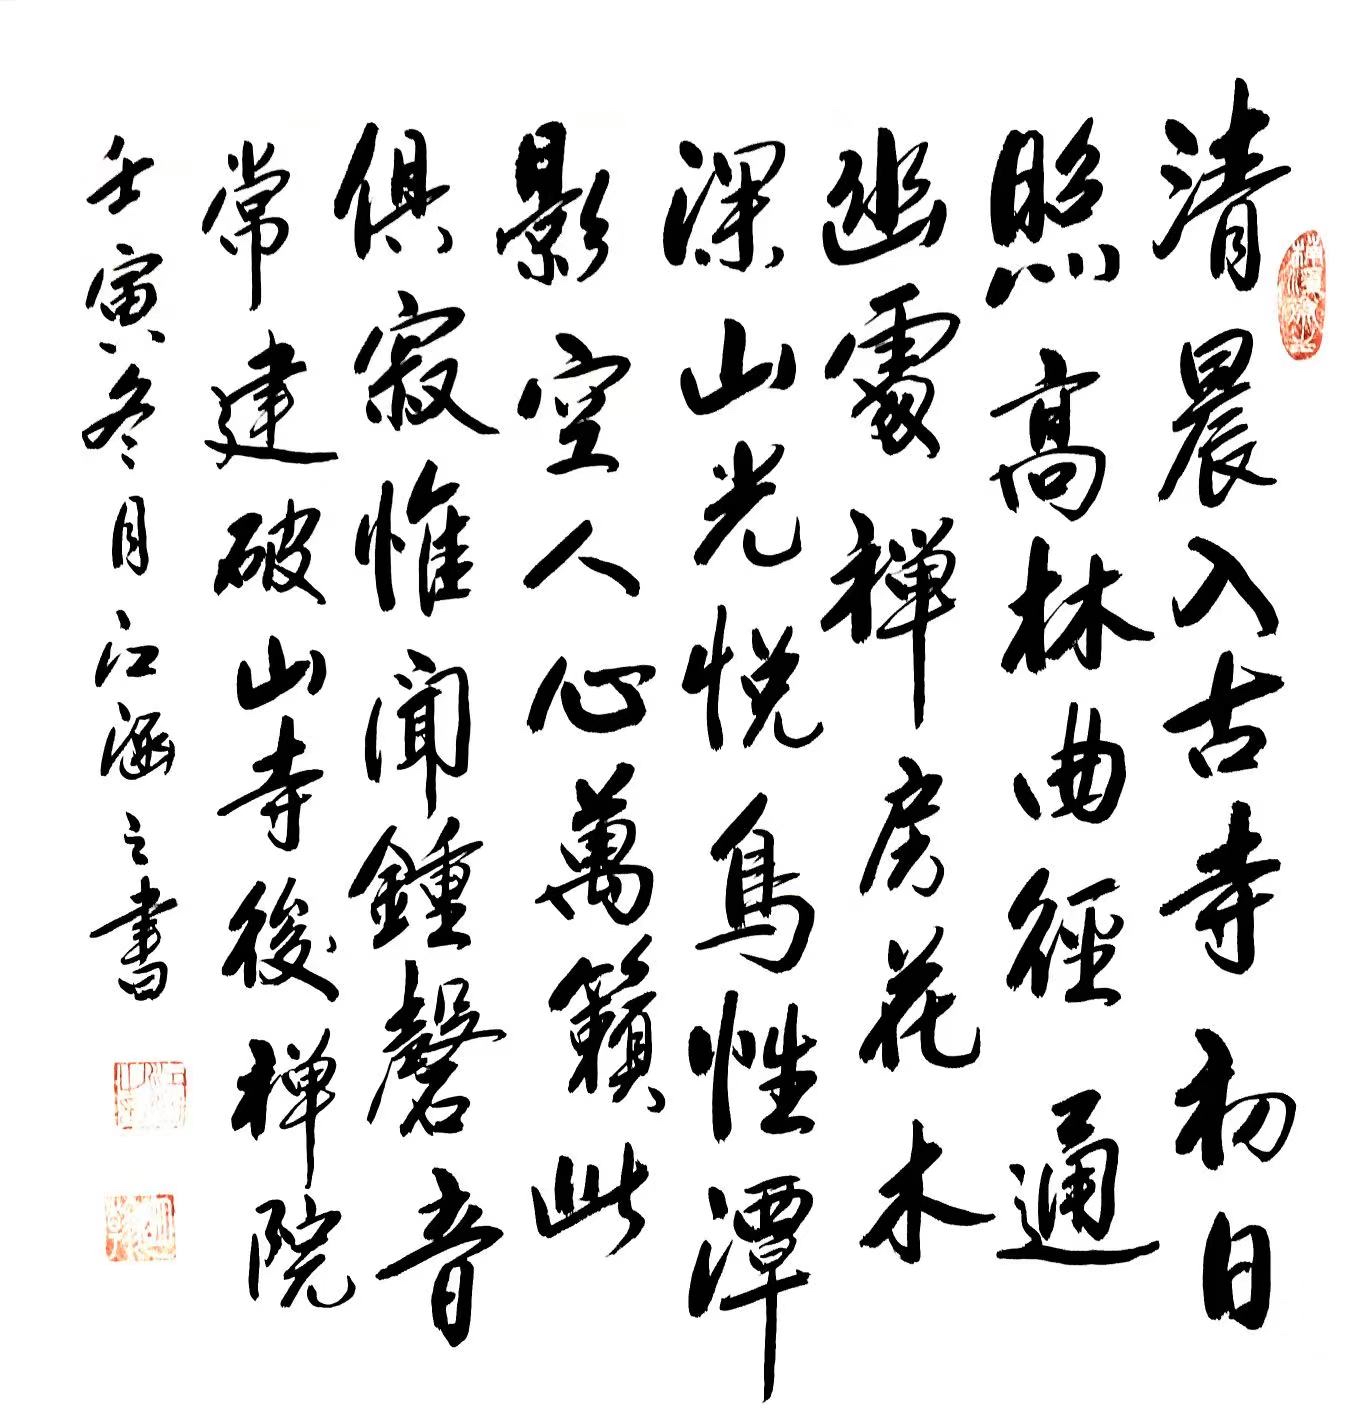 清晨入古寺初日
照高林曲徑通
幽處禅房花木
深山光悦鳥性潭
影空人心萬籟此
俱寂惟聞鍾磬音
常建破山寺後禅院
壬寅冬月江涵之書